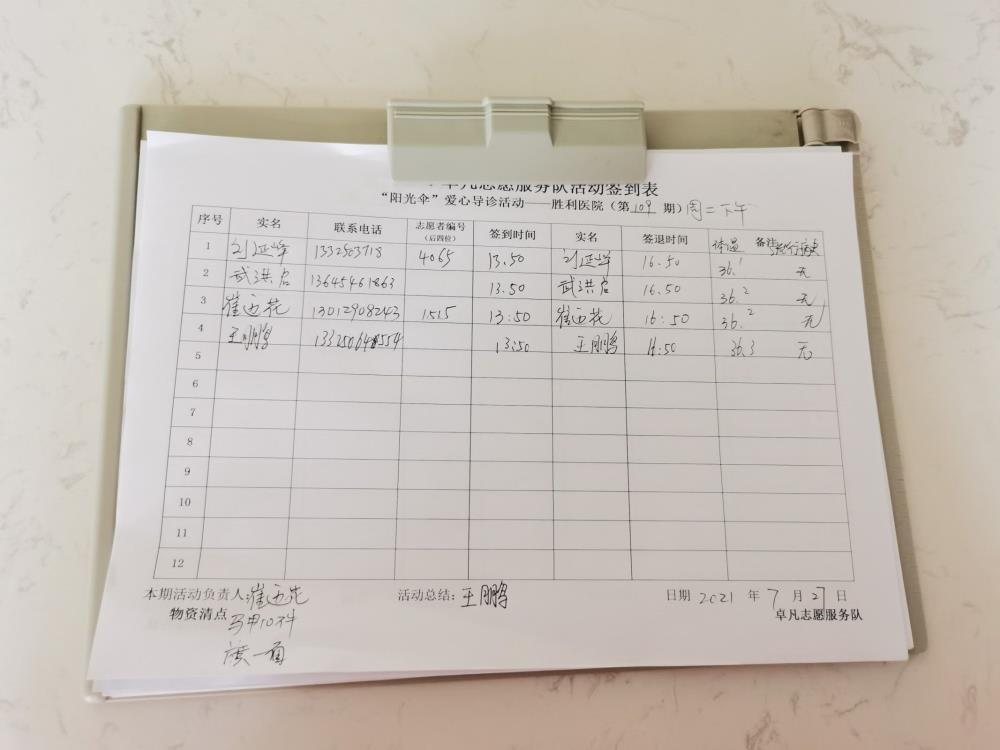 卓凡志愿服务队活动签到表
“阳光伞”爱心导诊活动——胜利医院（第109期）周二下午
序号 实名 联系电话 志愿者编号（后四位） 签到时间 实名 签退时间 体温 备注 流行病史
1 刘延峰 4065 13.50 刘延峰 16.50 36.1 无
2 武洪启 13645461863 13.50 武洪启 16.50 36.2 无
3 崔 花 13012908243 1515 13:50 崔 花 16:50 36.2 无
4 王鹏 13:50 王鹏 16:50 36.3 无
5
6
7
8
9
10
11
12
本期活动负责人：崔 花 活动总结：王鹏 日期 2021 年 7 月 27 日
物资清点 马甲10件 卓凡志愿服务队
旗一面